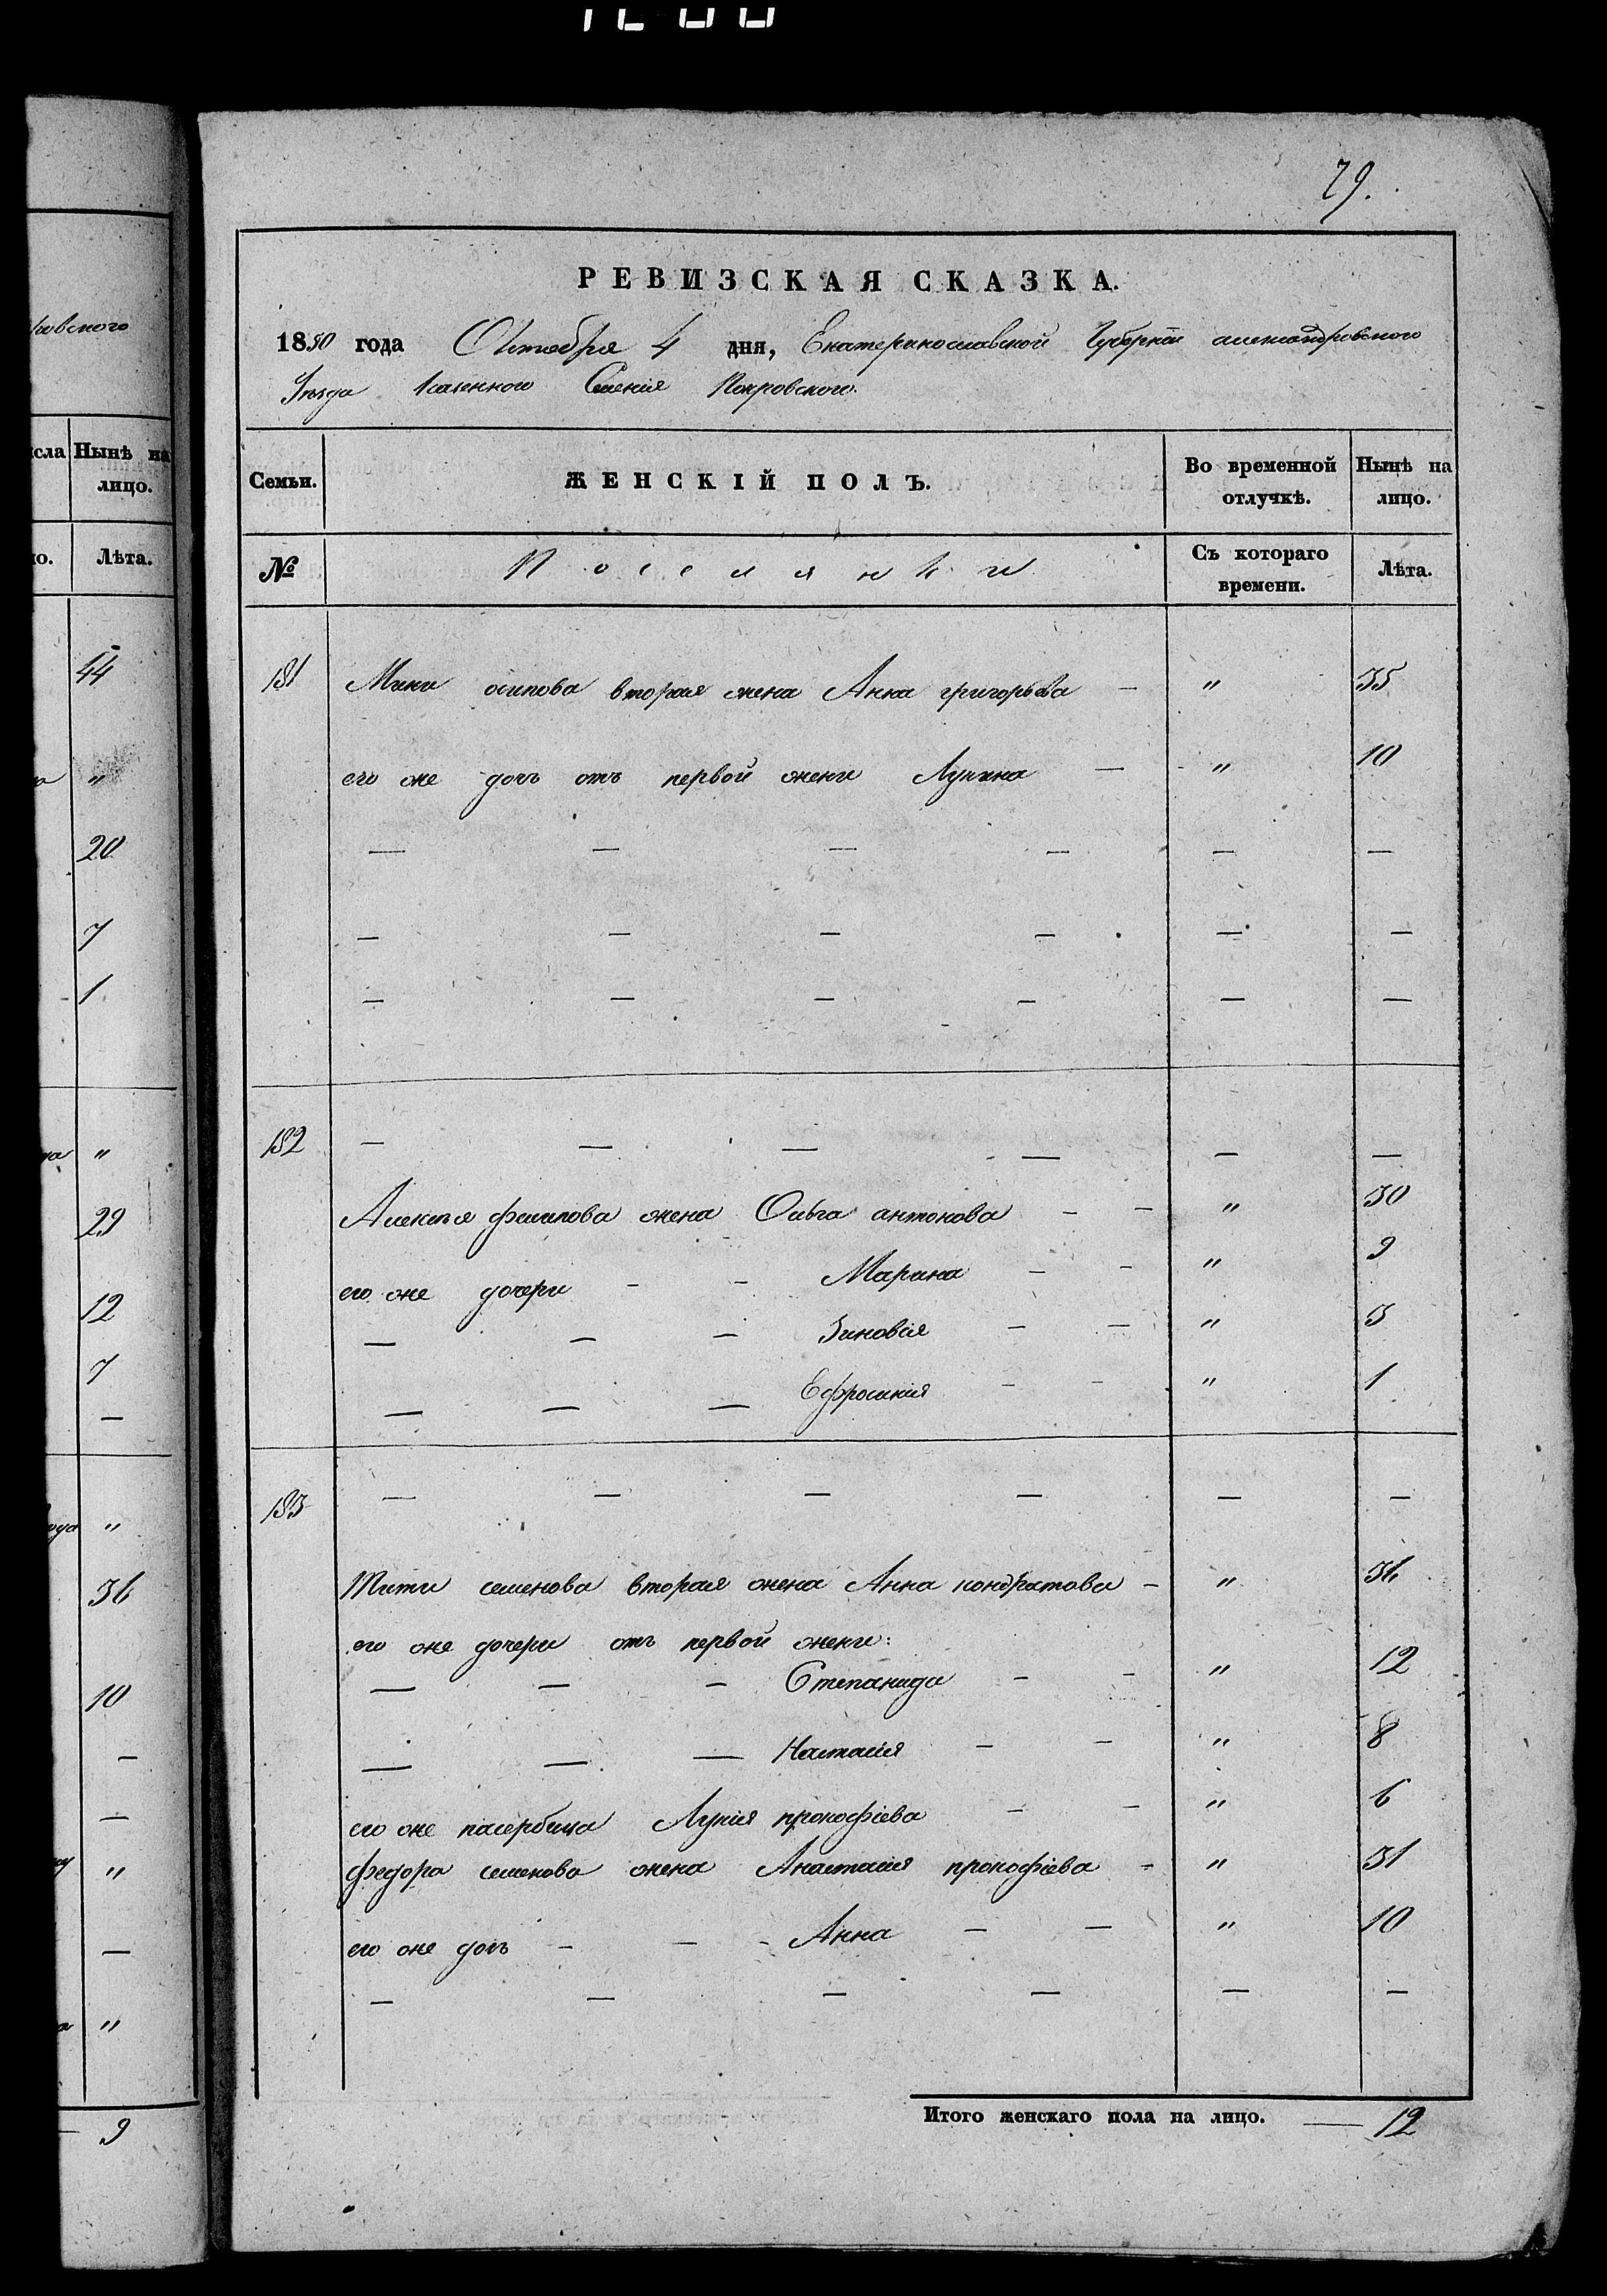 79.
РЕВИЗСКАЯ СКАЗКА.
1850 года Октября 4 дня, Екатеринославской Губерніи александровского
Уезда Казенного Селенія Покровского.
Семьи. ЖЕНСКІЙ ПОЛЪ. Во временной отлучкѣ. Нынѣ на лицо.
№ Поселянки Съ котораго времени. Лѣта.
181 Мины осипова вторая жена Анна григорьева — " 35
его же дочь отъ первой жены — " 10
— — — — — —
— — — — — —
— — — — — —
182 — — — — — —
Алексѣя филипова жена Ольга антонова — — " 30
его же дочери — — Марина — — " 9
— — — Зиновія — — " 3
— — — Ефросинія — — " 1
183 — — — — — —
Титы семенова вторая жена Анна кондратова — "
его же дочери отъ первой жены:
— — — Степанида — — " 12
— — — Настасія — — " 8
его же пасербица Лукія прокофіева — — " 6
федора семенова жена Анастасія прокофіева — " 31
его же дочь — — — Анна — — " 10
— — — — — —
Итого женскаго пола на лицо. — 12
ровского
сла Нынѣ на лицо.
ло. Лѣта.
44
"
20
7
1
"
29
12
7
—
ода "
36
10
—
—
"
—
"
— 9